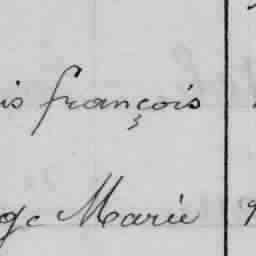 is françois
ge Marie